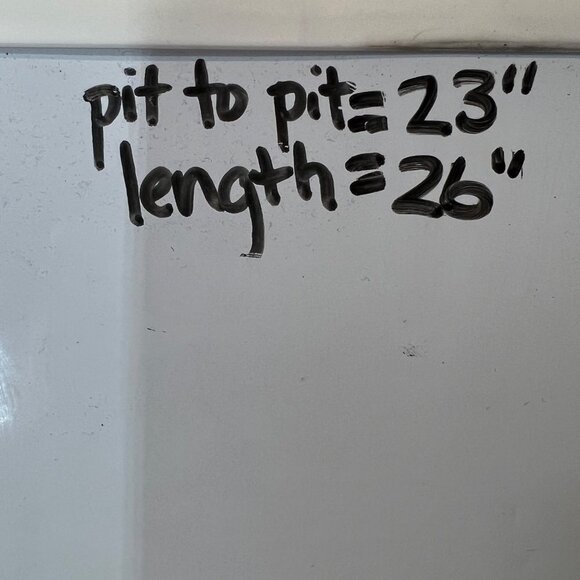 pit to pit = 23"
length = 26"